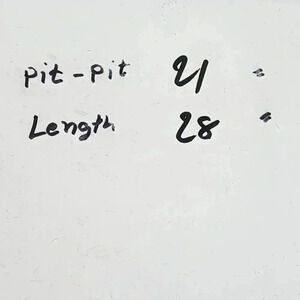 Pit-Pit 21 "
Length 28 "